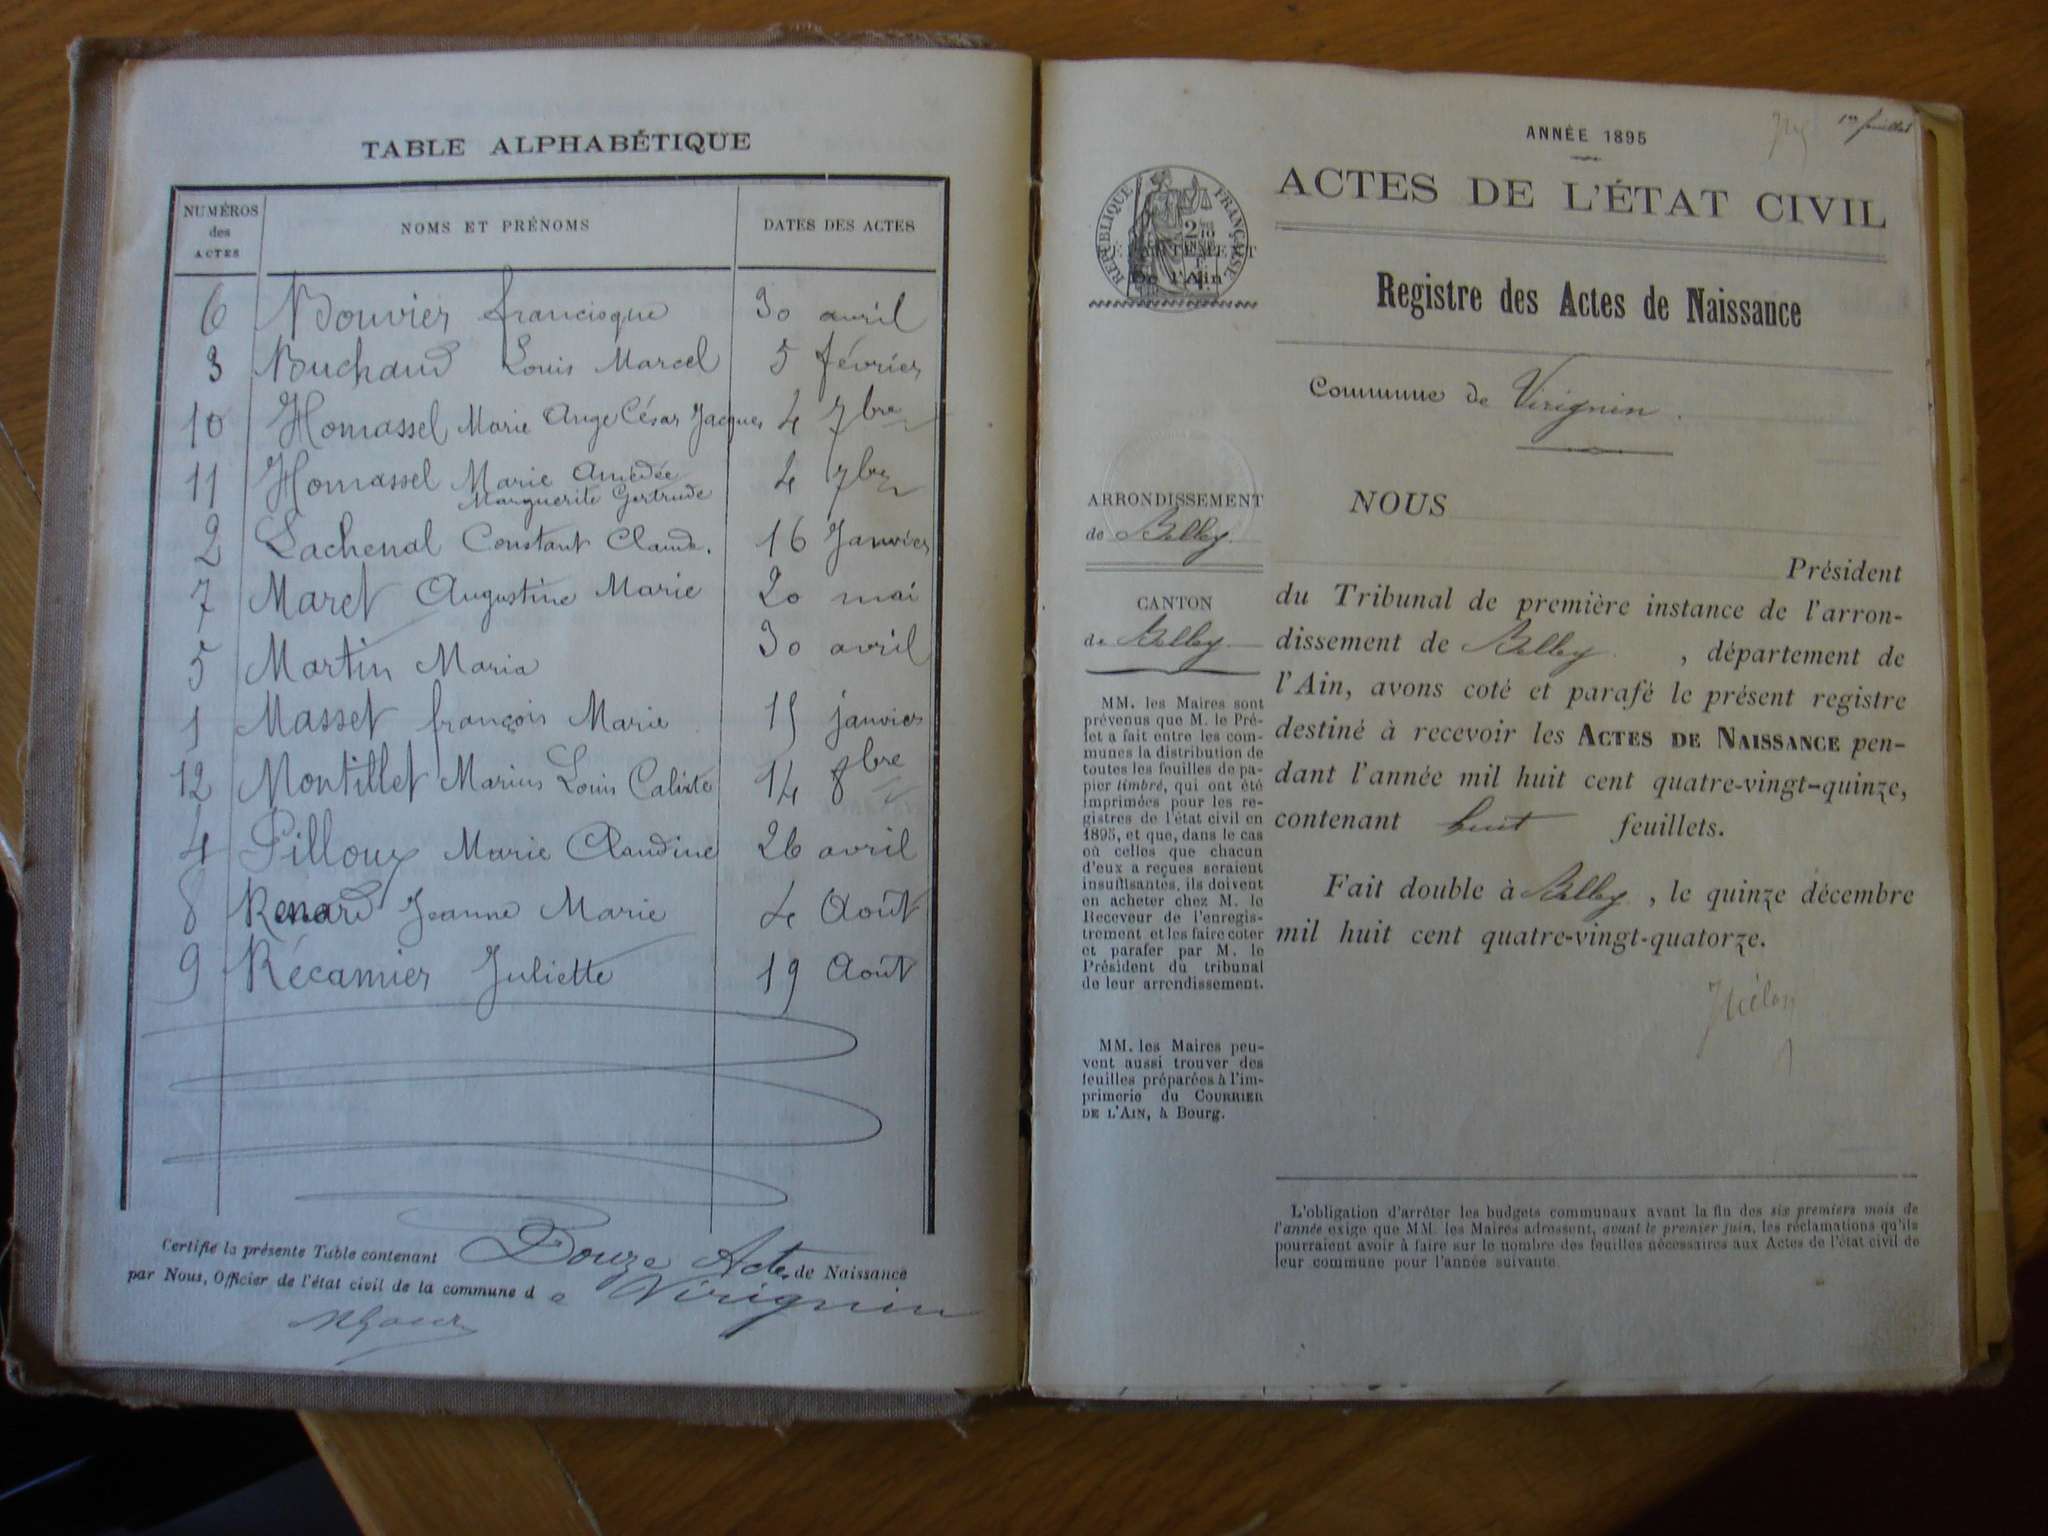 TABLE ALPHABÉTIQUE
NUMÉROS
des
ACTES
NOMS ET PRÉNOMS
DATES DES ACTES
6 Bouvier francisque 30 avril
3 Buchaud Louis Marcel 5 février
10 Homassel Marie Ange César Jacques 4 7bre
11 Homassel Marie Amédée
Marguerite Gertrude 4 7bre
2 Lachenal Constant Claude. 16 Janvier
7 Maret Augustine Marie 20 mai
5 Martin Maria 30 avril
1 Masset françois Marie 15 janvier
12 Montillet Marius Louis Calixte 14 8bre
4 Pilloux Marie Claudine 26 avril
8 Renard Jeanne Marie 4 Août
9 Récamier Juliette 19 Août
Certifié la présente Table contenant Douze Actes de Naissance
par Nous, Officier de l'état civil de la commune d e Virignin
1er feuillet
ANNÉE 1895
ACTES DE L'ÉTAT CIVIL
RÉPUBLIQUE FRANÇAISE
De l'Ain
Registre des Actes de Naissance
Commune de Virignin.
ARRONDISSEMENT
de Belley.
CANTON
de Belley
MM. les Maires sont
prévenus que M. le Pré-
fet a fait entre les com-
munes la distribution de
toutes les feuilles de pa-
pier timbré, qui ont été
imprimées pour les re-
gistres de l'état civil en
1895, et que, dans le cas
où celles que chacun
d'eux a reçues seraient
insuffisantes, ils doivent
en acheter chez M. le
Receveur de l'enregis-
trement et les faire coter
et parafer par M. le
Président du tribunal
de leur arrondissement.
MM. les Maires peu-
vent aussi trouver des
feuilles préparées à l'im-
primerie du COURRIER
DE L'AIN, à Bourg.
NOUS
Président
du Tribunal de première instance de l'arron-
dissement de Belley , département de
l'Ain, avons coté et parafé le présent registre
destiné à recevoir les ACTES DE NAISSANCE pen-
dant l'année mil huit cent quatre-vingt-quinze,
contenant huit feuillets.
Fait double à Belley, le quinze décembre
mil huit cent quatre-vingt-quatorze.
L'obligation d'arrêter les budgets communaux avant la fin des six premiers mois de
l'année exige que MM. les Maires adressent, avant le premier juin, les réclamations qu'ils
pourraient avoir à faire sur le nombre des feuilles nécessaires aux Actes de l'état civil de
leur commune pour l'année suivante.